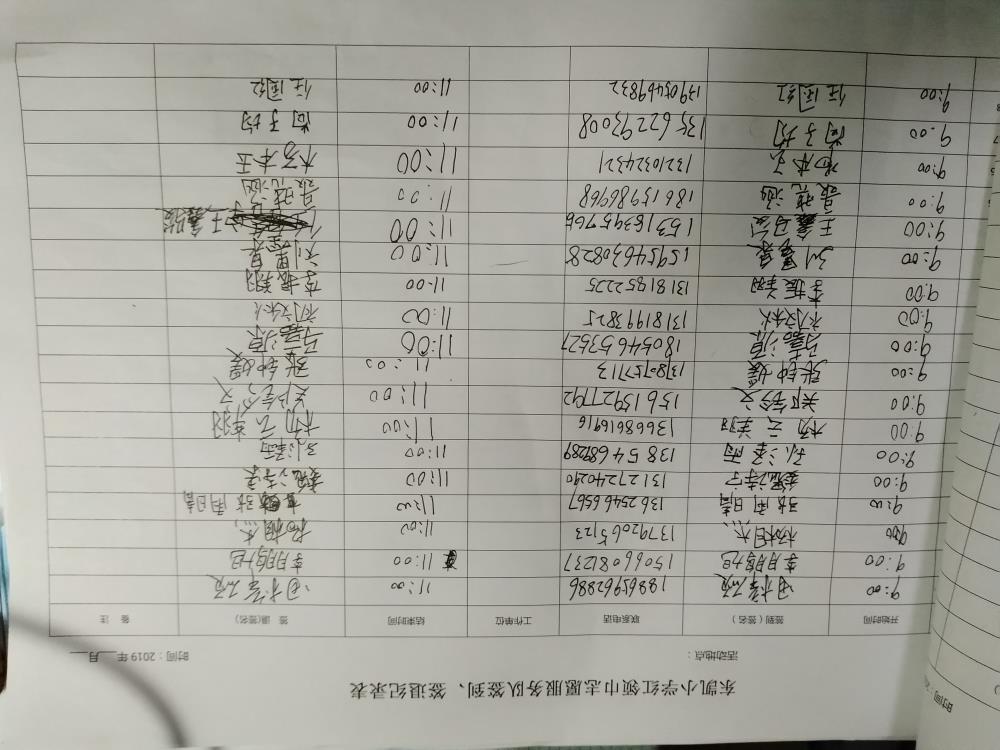 东凯小学红领巾志愿服务队签到、签退纪录表
活动地点： 时间：2019年__月__
开始时间 签到（签名） 联系电话 工作单位 结束时间 签退(签名) 备注
9:00 18865962886 11:00
9:00 李鹏旭 1506681237 11:00 李鹏旭
9:00 杨相杰 13792065123 11:00 杨相杰
9:00 张雨晴 13625466567 11:00 张雨晴
9:00 13127240290 11:00
9:00 孙泽雨 13854689289 11:00 孙泽雨
9:00 杨云翔 13668616916 11:00 杨云翔
9:00 郑含义 15615927792 11:00 郑含义
9:00 张钟媛 13780757113 11:00 张钟媛
9:00 马嘉源 18054653527 11:00 马嘉源
9:00 初文林 13181993825 11:00 初文林
9:00 李振翔 13181852225 11:00 李振翔
9:00 15954630828 11:00
9:00 王鑫 11:00 王鑫
9:00 聂琬涵 18615786968 11:00 聂琬涵
9:00 13210324321 11:00
9:00 尚子均 13562297008 11:00 尚子均
9:00 任国红 13905469832 11:00 任国红
时间：20